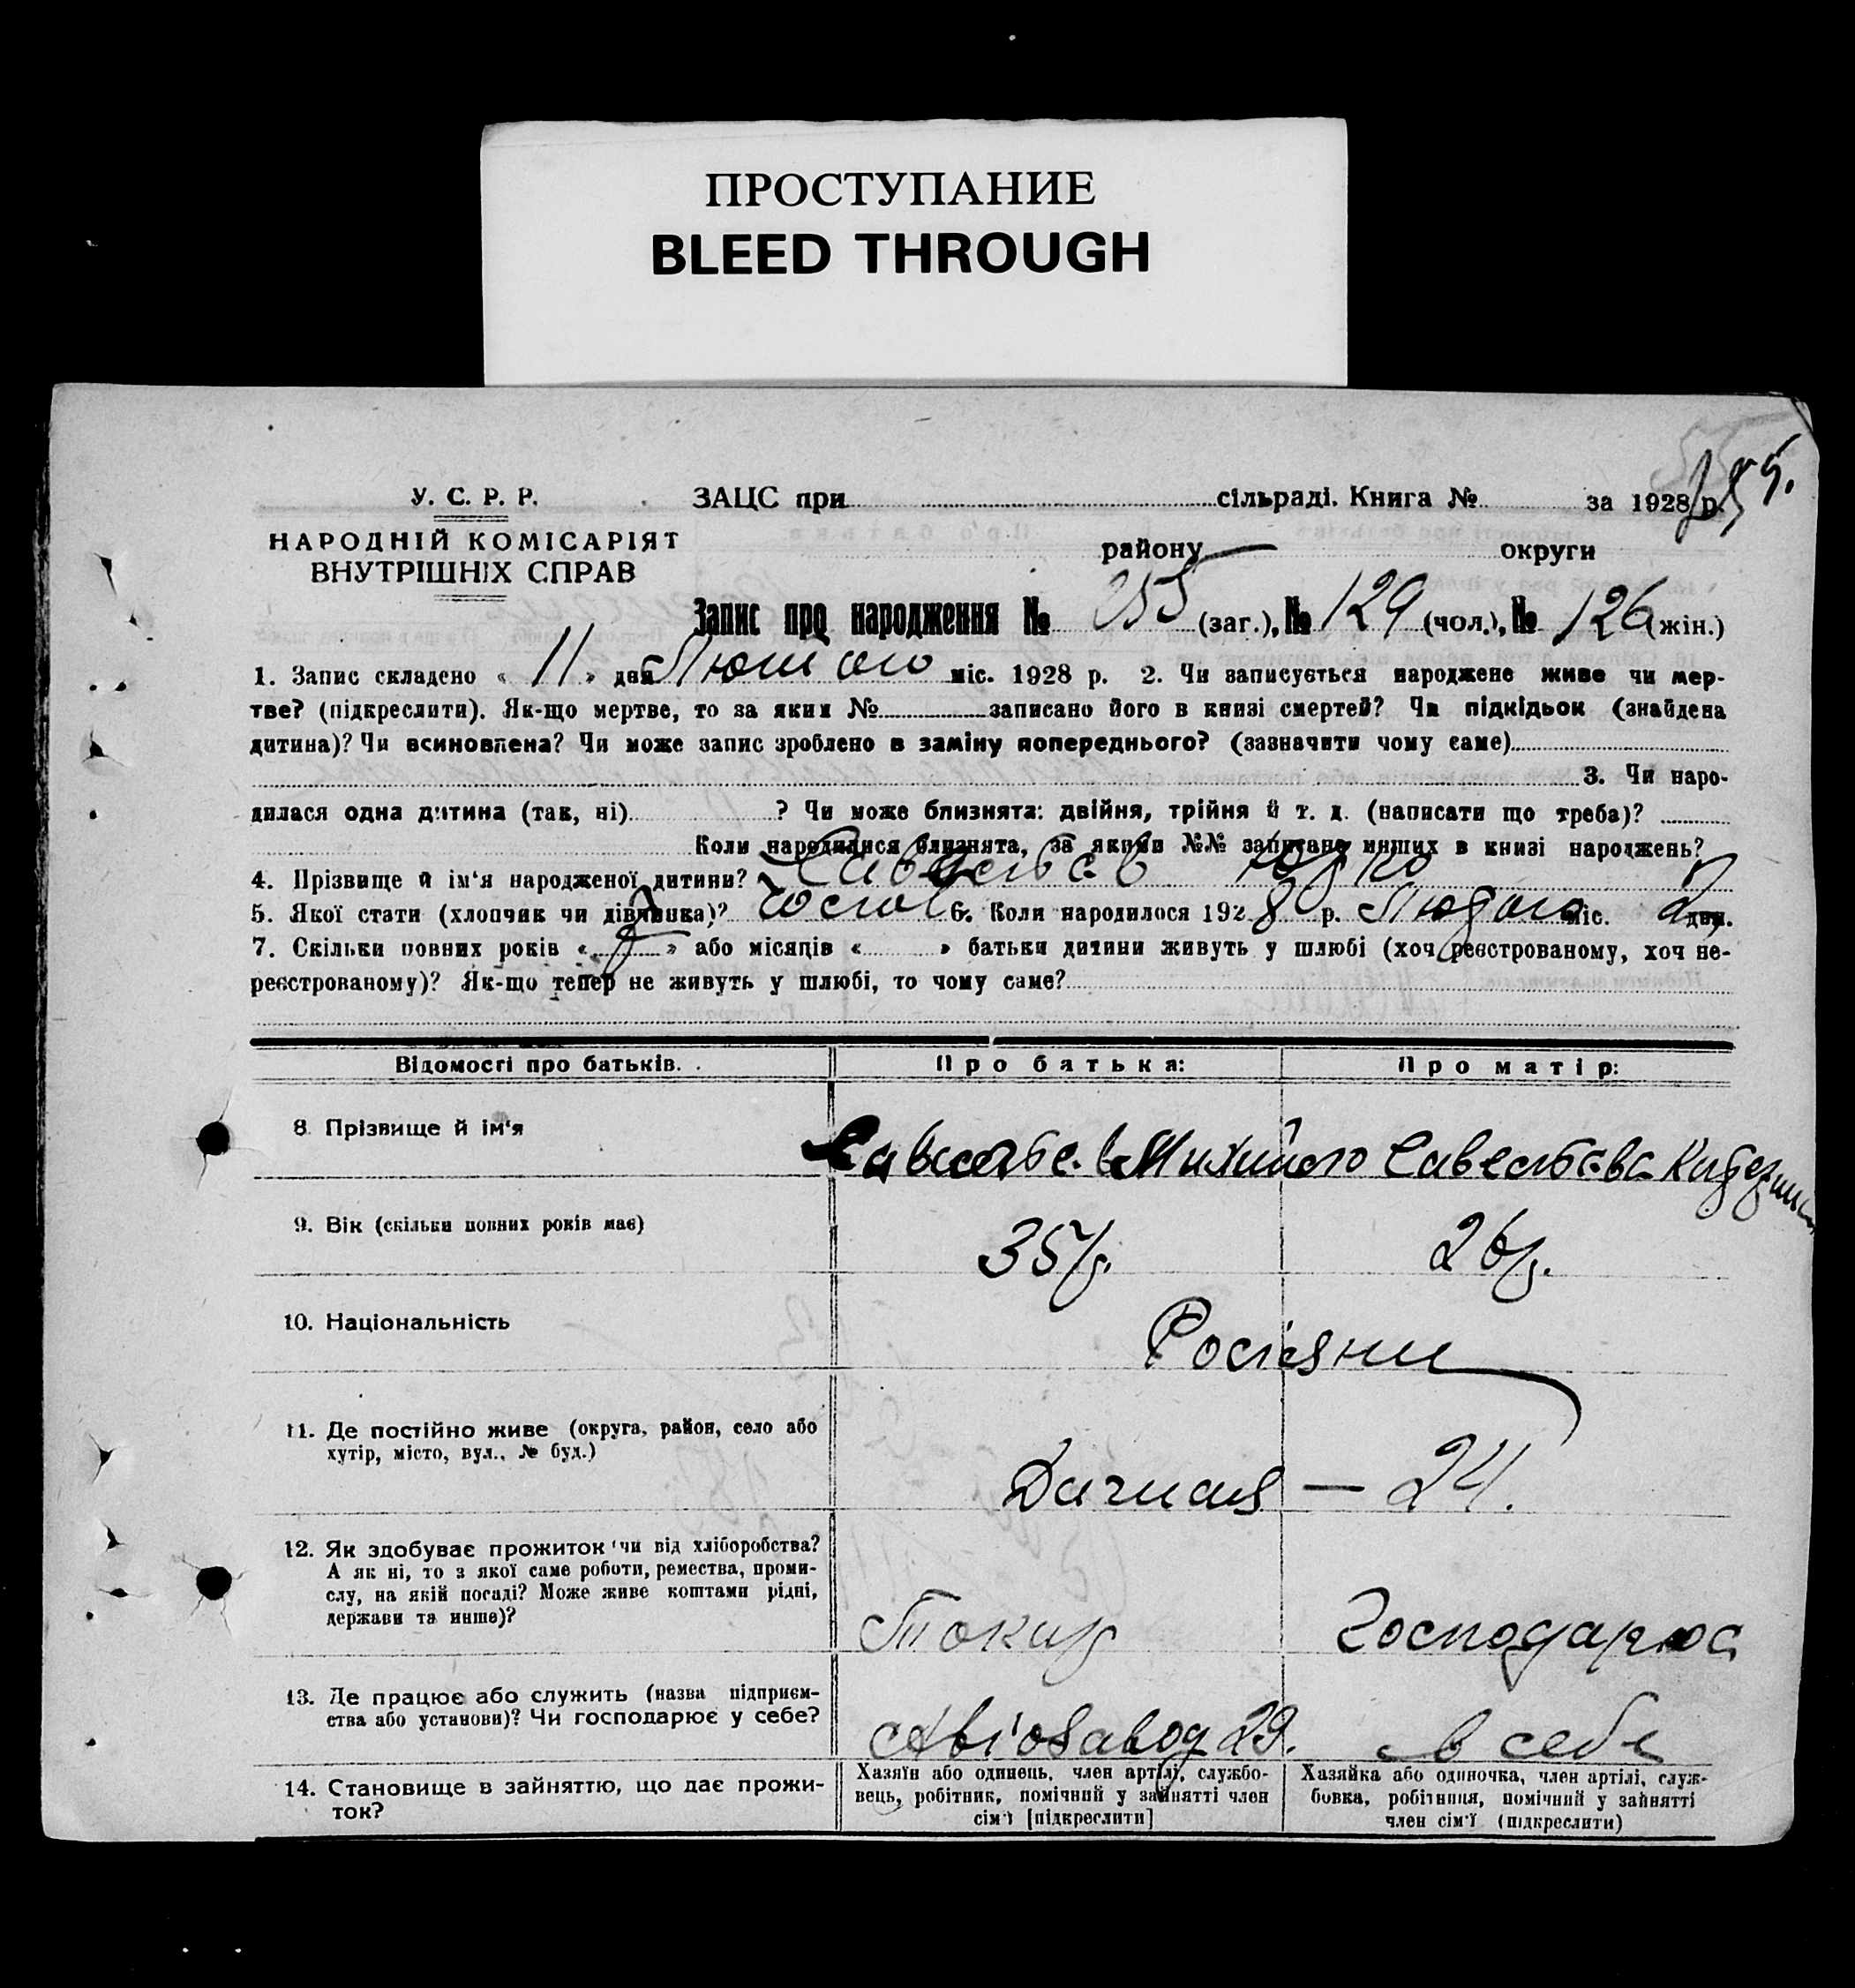 ПРОСТУПАНИЕ
BLEED THROUGH
У. С. Р. Р.
НАРОДНІЙ КОМІСАРІЯТ
ВНУТРІШНІХ СПРАВ
ЗАЦС при сільраді. Книга № за 1928 р.
району округи
Запис про народження № 255 (заг.), № 129 (чол.), № 126 (жін.)
1. Запис складено « 11 » дня Лютого міс. 1928 р. 2. Чи записується народжене живе чи мер-
тве? (підкреслити). Як-що мертве, то за яким № записано його в книзі смертей? Чи підкідьок (знайдена
дитина)? Чи всиновлена? Чи може запис зроблено в заміну попереднього? (зазначити чому саме)
3. Чи наро-
дилася одна дитина (так, ні) ? Чи може близнята: двійня, трійня й т. д. (написати що треба)?
Коли народилися близнята, за якими №№ записано инших в книзі народжень?
4. Прізвище й ім'я народженої дитини? Савельєв Юрко
5. Якої стати (хлопчик чи дівчинка)? чол 6. Коли народилося 1928 р. Лютого міс. 2 дня.
7. Скільки повних років « » або місяців « » батьки дитини живуть у шлюбі (хоч реєстрованому, хоч не-
реєстрованому)? Як-що тепер не живуть у шлюбі, то чому саме?
Відомості про батьків. Про батька: Про матір:
8. Прізвище й ім'я Савельєв Михайло Савельєва
9. Вік (скільки повних років має) 35 р. 26 р.
10. Національність Росіяни
11. Де постійно живе (округа, район, село або
хутір, місто, вул., № буд.)
Дачная — 24.
12. Як здобуває прожиток чи від хліборобства?
А як ні, то з якої саме роботи, ремества, проми-
слу, на якій посаді? Може живе коштами рідні,
держави та инше)?
Токар Господарює
13. Де працює або служить (назва підприєм-
ства або установи)? Чи господарює у себе?
Авіозавод 29. в себе
14. Становище в зайняттю, що дає прожи-
ток?
Хазяїн або одинець, член артілі, службо-
вець, робітник, помічний у зайнятті член
сім'ї [підкреслити]
Хазяйка або одиночка, член артілі, служ-
бовка, робітниця, помічний у зайнятті
член сім'ї (підкреслити)